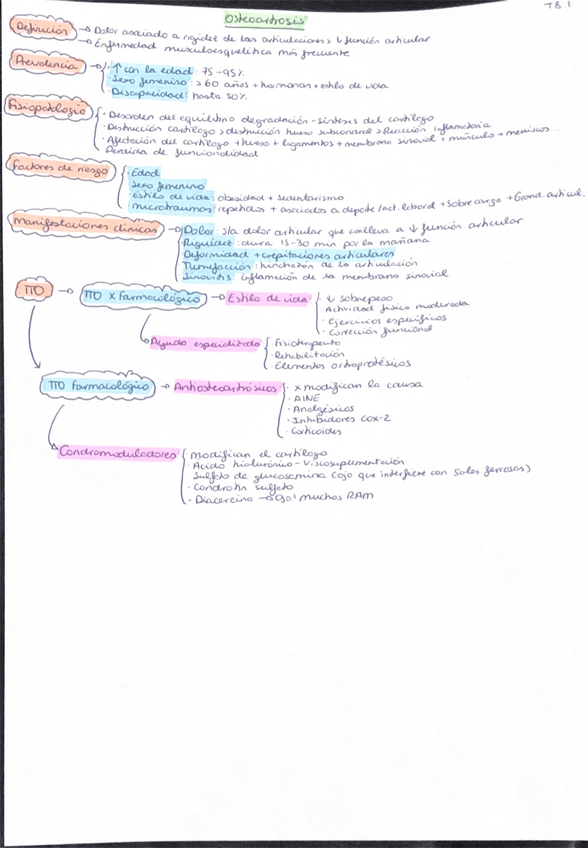 T8.1
Osteoartrosis
Definición → Dolor asociado a rigidez de las articulaciones > ↓ función articular
→ Enfermedad musculoesquelética más frecuente
Prevalencia → · ↑ con la edad: 75-95%
· Sexo femenino: >60 años + hormonas + estilo de vida
· Discapacidad: hasta 50%
Fisiopatología · Desorden del equilibrio degradación-síntesis del cartílago
· Destrucción cartílago > destrucción hueso subcondral > Reacción inflamatoria
· Afectación del cartílago + hueso + ligamentos + membrana sinovial + músculo + meniscos
· Pérdida de funcionalidad
Factores de riesgo · Edad
· Sexo femenino
· Estilo de vida: obesidad + sedentarismo
· microtraumas: repetidos + asociados a deporte/act. laboral + sobrecarga + Grand. articul.
Manifestaciones clínicas → Dolor: s/a dolor articular que conlleva a ↓ función articular
Rigidez: dura 15-30 min por la mañana
Deformidad + crepitaciones articulares
Tumefacción: hinchazón de la articulación
Sinovitis: inflamación de la membrana sinovial
TTO → TTO X Farmacológico → Estilo de vida · ↓ sobrepeso
· Actividad física moderada
· Ejercicios específicos
· Corrección funcional
Ayuda especializada · Fisioterapeuta
· Rehabilitación
· Elementos ortoprotésicos
TTO Farmacológico → Antiosteoartrósicos · X modifican la causa
· AINE
· Analgésicos
· Inhibidores COX-2
· Corticoides
Condromoduladores · modifican el cartílago
· Acido hialurónico - Viscosuplementación
· Sulfato de glucosamina (ojo que interfiere con sales ferrosas)
· Condrotin sulfato
· Diacereina → ¡Ojo! muchos RAM